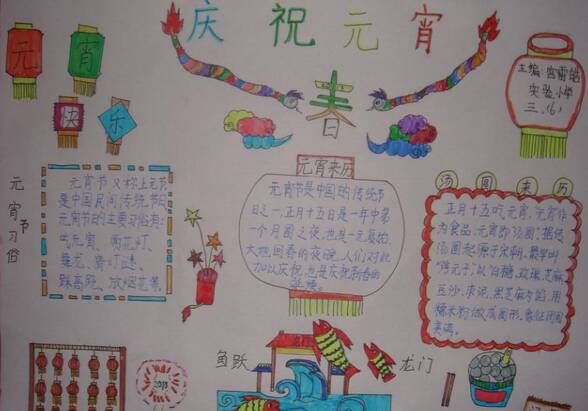 庆祝元宵
元宵
快乐
春
主编:宫雷皓
实验小学
三.(6)
元宵节习俗
元宵节又称上元节
是中国民间传统节日
元宵节的主要习俗有:
吃元宵、赏花灯、
舞龙、猜灯谜、
踩高跷、放烟花等。
元宵来历
元宵节是中国的传统节
日之一,正月十五日是一年中第
一个月圆之夜,也是一元复始,
大地回春的夜晚,人们对此
加以庆祝,也是庆祝新春的
延续。
汤圆来历
正月十五吃元宵,元宵作
为食品,元宵即"汤圆",据传
汤圆起源于宋朝,最早叫
"浮元子",以白糖、玫瑰、芝麻、
豆沙、枣泥、黑芝麻为馅,用
糯米粉做成圆形,象征团圆
美满。
鱼跃
龙门
2013